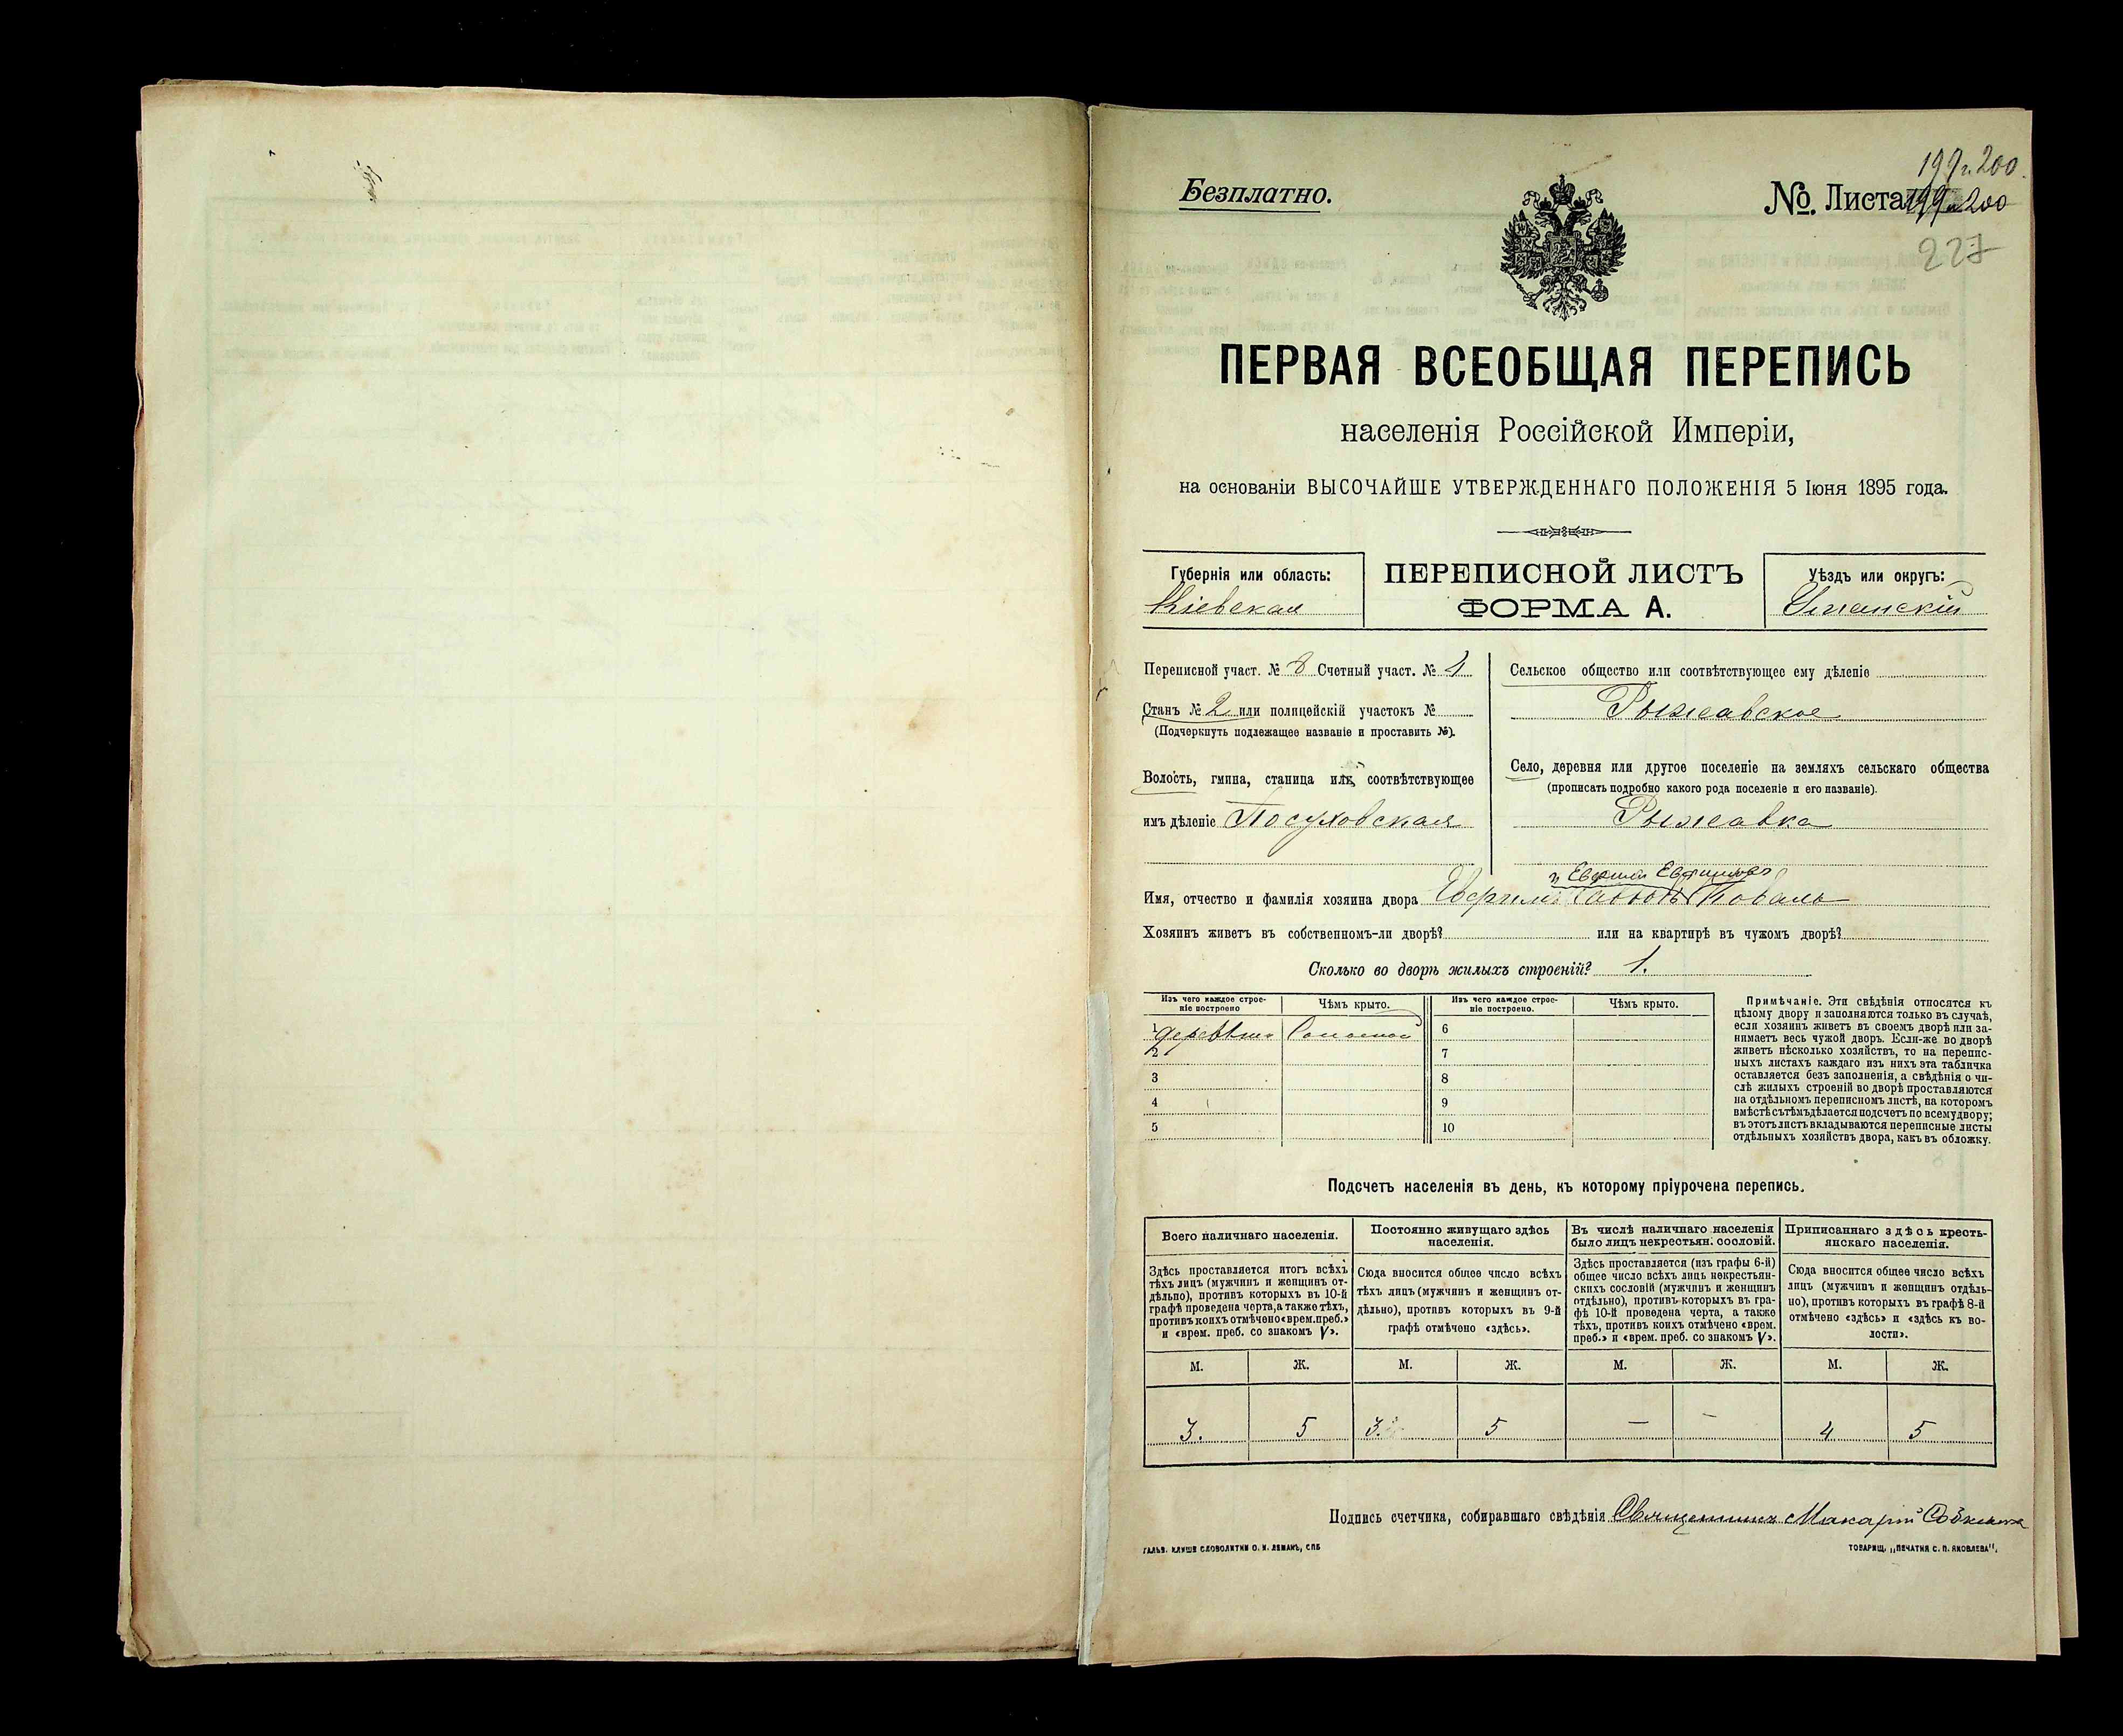 199 и 200.
Безплатно.
№. Листа 199 и 200
227
ПЕРВАЯ ВСЕОБЩАЯ ПЕРЕПИСЬ
населенія Россійской Имперіи,
на основаніи ВЫСОЧАЙШЕ УТВЕРЖДЕННАГО ПОЛОЖЕНІЯ 5 Іюня 1895 года.
Губернія или область:
Кіевская
ПЕРЕПИСНОЙ ЛИСТЪ
ФОРМА А.
Уѣздъ или округъ:
Уманскій
Переписной участ. № 8 Счетный участ. № 1
Станъ № 2 или полицейскій участокъ №
(Подчеркнуть подлежащее названіе и проставить №).
Волость, гмина, станица или соотвѣтствующее
имъ дѣленіе Посуховская
Сельское общество или соотвѣтствующее ему дѣленіе
Рыжавское
Село, деревня или другое поселеніе на земляхъ сельскаго общества
(прописать подробно какого рода поселеніе и его названіе).
Рыжавка
и Евфимій
Имя, отчество и фамилія хозяина двора Коваль
Хозяинъ живетъ въ собственномъ-ли дворѣ? или на квартирѣ въ чужомъ дворѣ?
Сколько во дворѣ жилыхъ строеній? 1.
Изъ чего каждое строе-
ніе построено
Чѣмъ крыто.
Изъ чего каждое строе-
ніе построено.
Чѣмъ крыто.
1 Соломой 6
2 7
3 8
4 9
5 10
Примѣчаніе. Эти свѣдѣнія относятся къ
цѣлому двору и заполняются только въ случаѣ,
если хозяинъ живетъ въ своемъ дворѣ или за-
нимаетъ весь чужой дворъ. Если-же во дворѣ
живетъ нѣсколько хозяйствъ, то на перепис-
ныхъ листахъ каждаго изъ нихъ эта табличка
оставляется безъ заполненія, а свѣдѣнія о чи-
слѣ жилыхъ строеній во дворѣ проставляются
на отдѣльномъ переписномъ листѣ, на которомъ
вмѣстѣ съ тѣмъ дѣлается подсчетъ по всему двору;
въ этотъ листъ вкладываются переписные листы
отдѣльныхъ хозяйствъ двора, какъ въ обложку.
Подсчетъ населенія въ день, къ которому пріурочена перепись.
Всего наличнаго населенія.
Здѣсь проставляется итогъ всѣхъ
тѣхъ лицъ (мужчинъ и женщинъ от-
дѣльно), противъ которыхъ въ 10-й
графѣ проведена черта, а также тѣхъ,
противъ коихъ отмѣчено «врем. преб.»
и «врем. преб. со знакомъ V».
Постоянно живущаго здѣсь
населенія.
Сюда вносится общее число всѣхъ
тѣхъ лицъ (мужчинъ и женщинъ от-
дѣльно), противъ которыхъ въ 9-й
графѣ отмѣчено «здѣсь».
Въ числѣ наличнаго населенія
было лицъ некрестьян. сословій.
Здѣсь проставляется (изъ графы 6-й)
общее число всѣхъ лицъ некрестьян-
скихъ сословій (мужчинъ и женщинъ
отдѣльно), противъ которыхъ въ гра-
фѣ 10-й проведена черта, а также
тѣхъ, противъ коихъ отмѣчено «врем.
преб.» и «врем. преб. со знакомъ V».
Приписаннаго здѣсь кресть-
янскаго населенія.
Сюда вносится общее число всѣхъ
лицъ (мужчинъ и женщинъ отдѣль-
но), противъ которыхъ въ графѣ 8-й
отмѣчено «здѣсь» и «здѣсь къ во-
лости».
М. Ж. М. Ж. М. Ж. М. Ж.
3. 5 3. 5 — — 4 5
Подпись счетчика, собиравшаго свѣдѣнія Священникъ Макарій
ГАЛЬВ. КЛИШЕ СЛОВОЛИТНИ О. И. ЛЕМАНЪ, СПБ
ТОВАРИЩ. „ПЕЧАТНЯ С. П. ЯКОВЛЕВА".